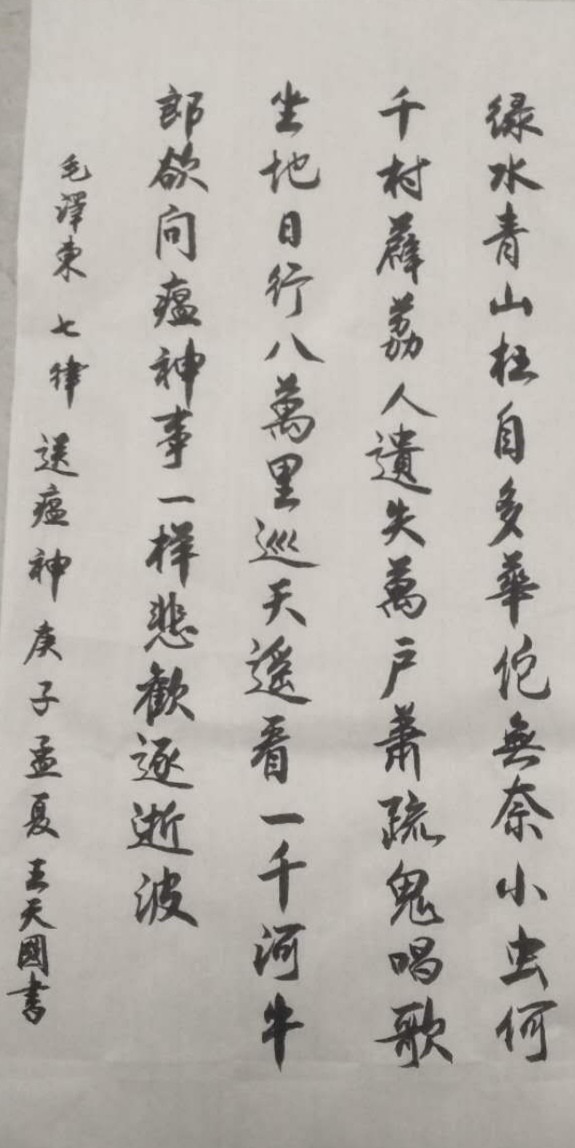 绿水青山枉自多華佗無奈小虫何
千村薜荔人遺失萬戶蕭疏鬼唱歌
坐地日行八萬里巡天遥看一千河牛
郎欲问瘟神事一样悲歡逐逝波
毛澤東 七律 送瘟神 庚子孟夏 王天國書